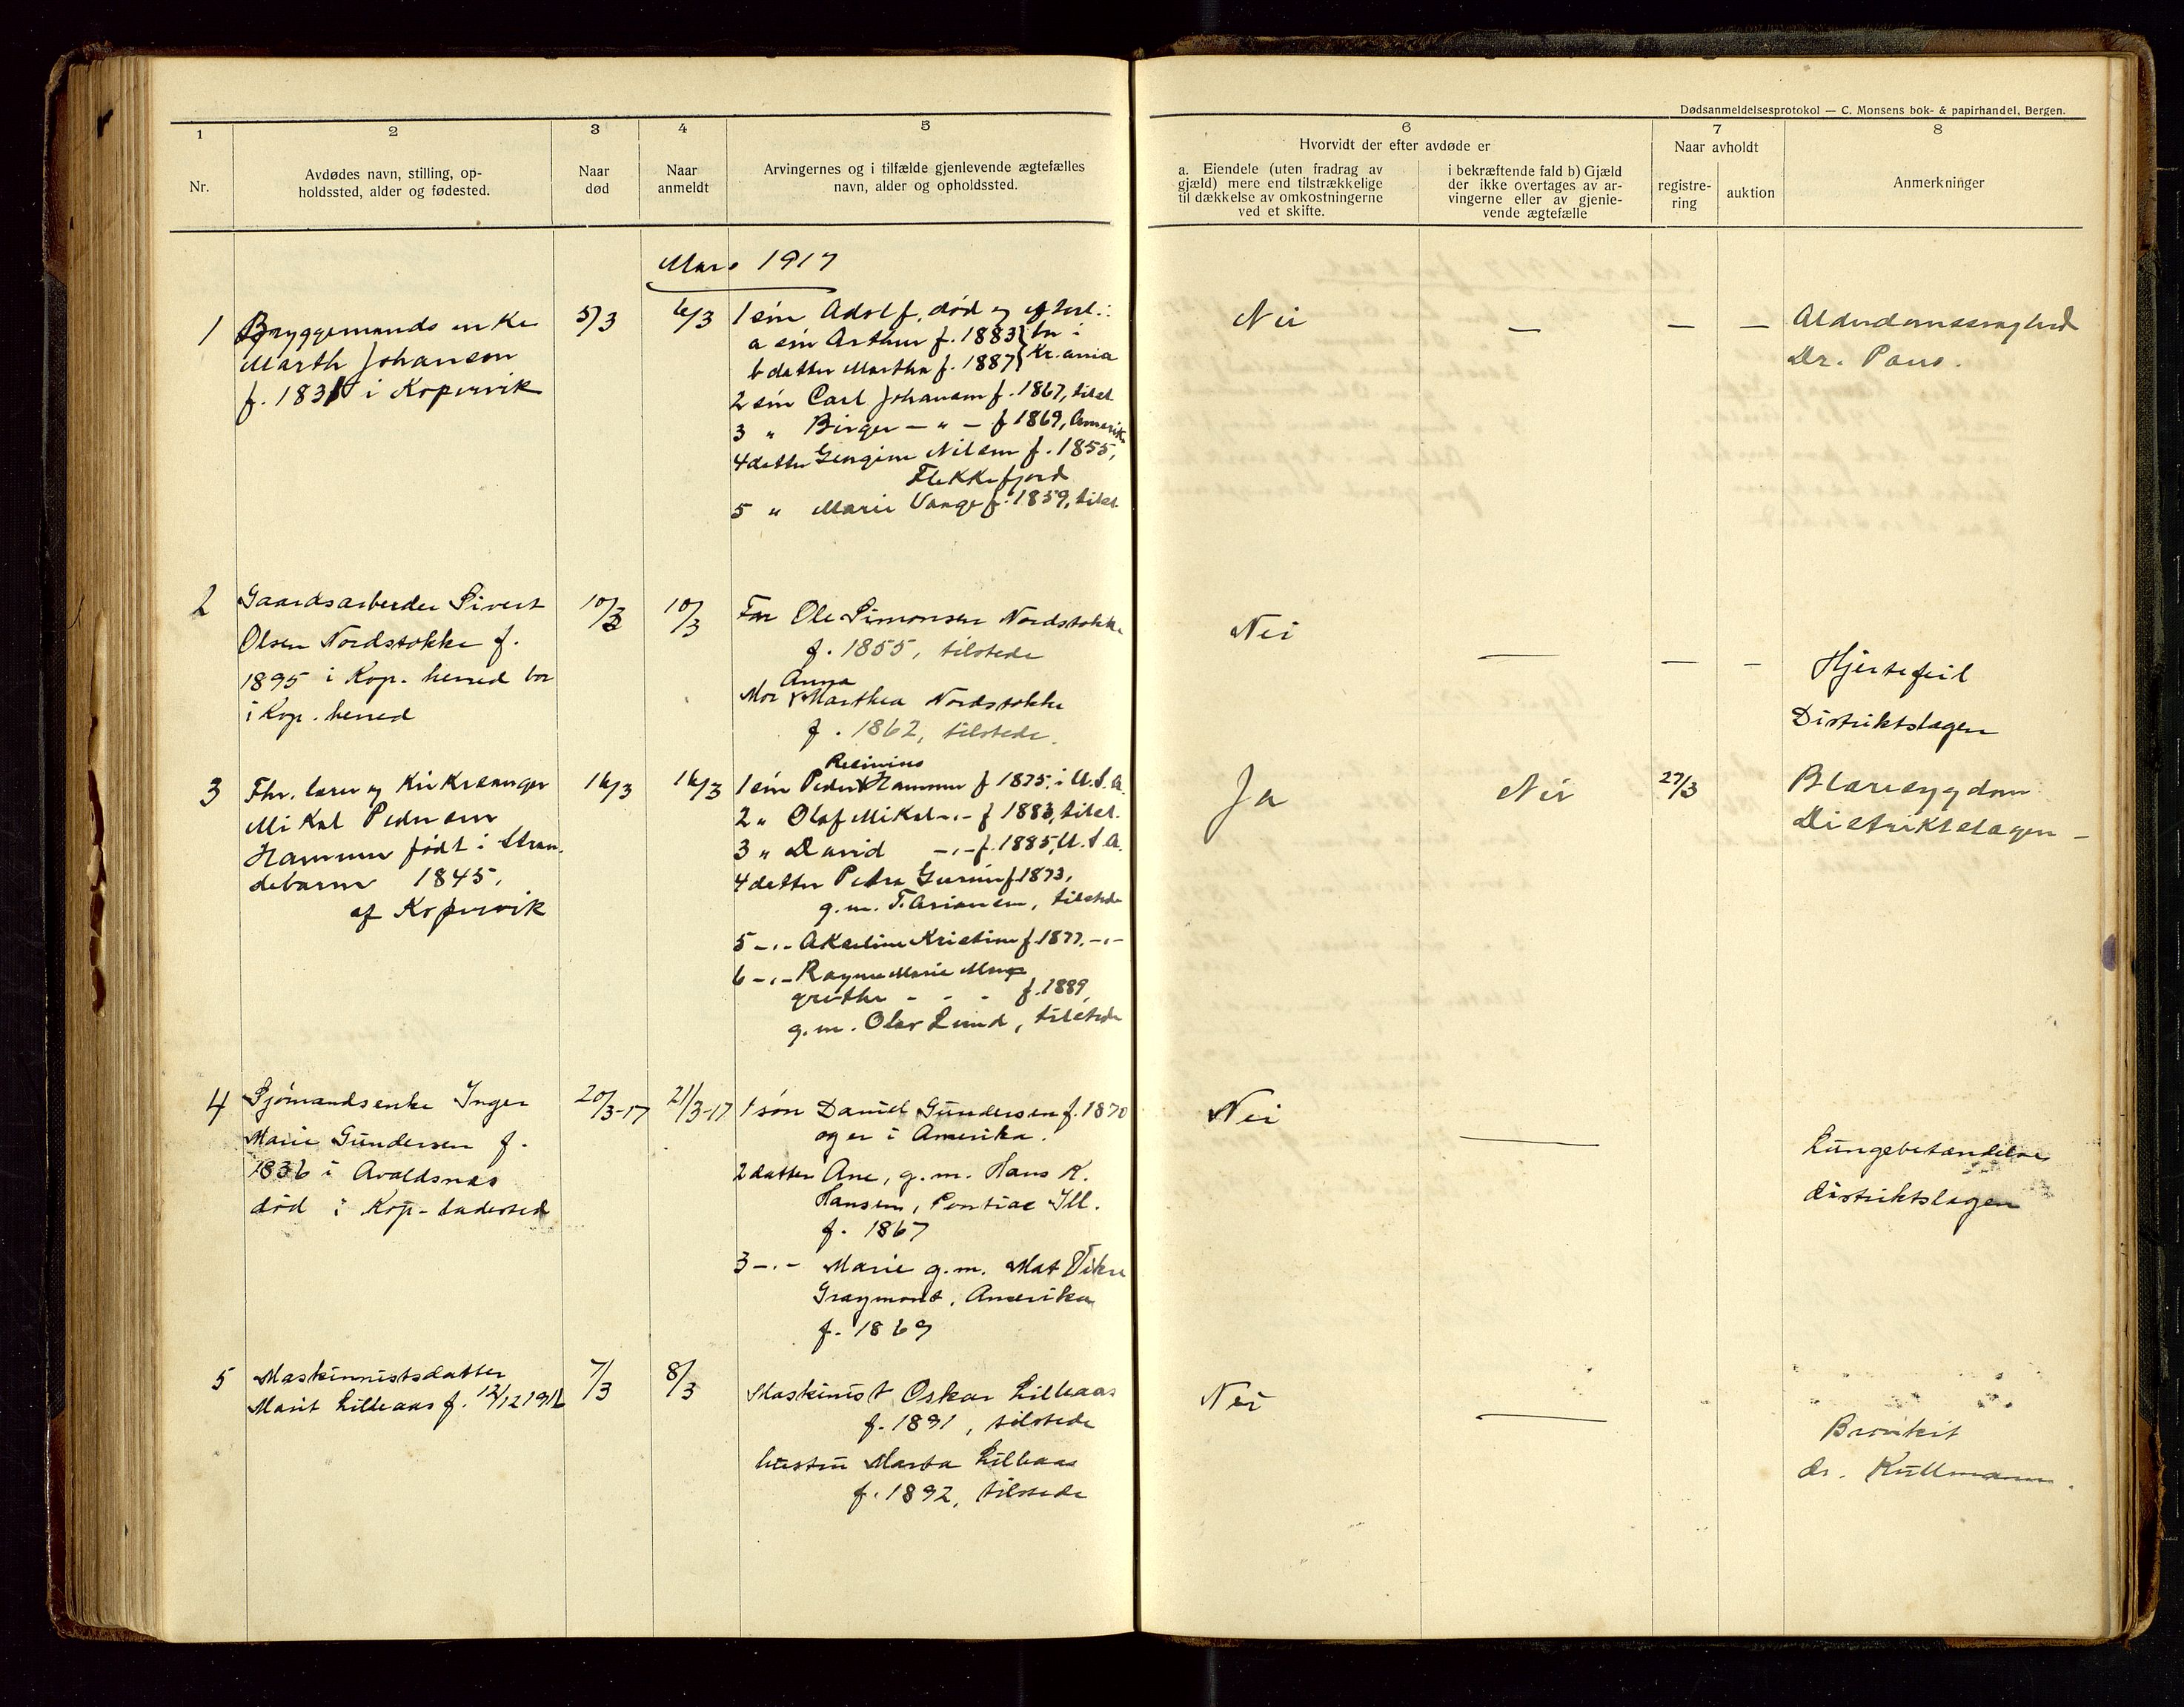 Dødsanmeldelsesprotokol — C. Monsens bok- & papirhandel, Bergen.
1 2 3 4 5 6 7 8
Nr.
Avdødes navn, stilling, op-
holdssted, alder og fødested.
Naar
død
Naar
anmeldt
Arvingernes og i tilfælde gjenlevende ægtefælles
navn, alder og opholdssted.
Hvorvidt der efter avdøde er
a. Eiendele (uten fradrag av
gjæld) mere end tilstrækkelige
til dækkelse av omkostningerne
ved et skifte.
i bekræftende fald b) Gjæld
der ikke overtages av ar-
vingerne eller av gjenle-
vende ægtefælle
Naar avholdt
registre-
ring
auktion
Anmerkninger
Mars 1917
1
Bryggemands enke
Marth Johansen
f. 1831 i Kopervik
5/3
6/3
1 søn Adolf, død og efterl.:
a søn Arthur f. 1883 } bor i
b datter Martha f. 1887 } Kr.ania
2 søn Carl Johansen f. 1867, tilst.
3 " Birger — " — f 1869, Amerika
4 datter Gurine Nilsen f. 1855,
Flekkefjord
5 " Marie Vange f. 1859, tilst.
Nei
—
— —
Alderdomssvaghed
Dr. Paus.
2
Gaardsarbeider Sivert
Olsen Nordstokke f.
1895 i Kop. herred bor
i Kop. herred
10/3
10/3
Far Ole Simonsen Nordstokke
f. 1855, tilstede
Anna
Mor Marthea Nordstokke
f. 1862, tilstede.
Nei
—
— —
Hjertefeil
Distriktslægen
3
Fhr. lærer og Kirkesanger
Mikal Pedersen
Hammer født i Stran-
debarm 1845,
af Kopervik
16/3
16/3
1 søn Peder Hammer f 1875, i U.S.A.
2 " Olaf Mikal -"- f 1883, tilst.
3 " David -"- f. 1885, U.S.A.
4 datter Petra Gurine f 1873,
g.m. T. Asiansen, tilstede
5 -"- Akseline Kristine f. 1877. -"-
6 -"- Ragna Marie Mar
grethe - - - f. 1889,
g.m. Olav Lund, tilstede
Ja
Nei
27/3
Blæresygdom
Distriktslægen —
4
Sjømandsenke Inger
Marie Gundersen f.
1836 i Avaldsnes
død i Kop- ladested
20/3-17
21/3-17
1 søn Daniel Gundersen f. 1870
og er i Amerika.
2 datter Ane, g.m. Hans K.
Hansen, Pontiac Ill.
f. 1867
3 -"- Marie g.m. Mat Vikse
Graymont, Amerika
f. 1869
Nei
—
Lungebetændelse
distriktslægen
5
Maskinistsdatter
Marit Lilleaas f. 12/12 1916
7/3
8/3
Maskinist Oskar Lilleaas
f. 1891, tilstede
hustru Marta Lilleaas
f. 1892, tilstede
Nei
—
Bronkit
dr. Kullmann.